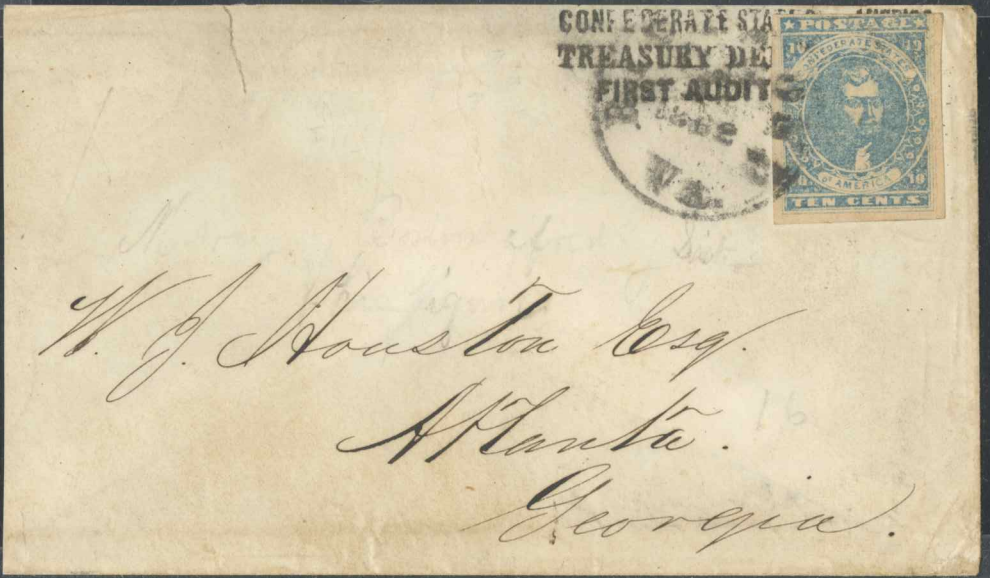 CONFEDERATE STA
TREASURY DE
FIRST AUDIT
VA.
POSTAGE
10 10
CONFEDERATE STATES
OF AMERICA
10
TEN CENTS
W. J. Houston Esq.
Atlanta.
Georgia.